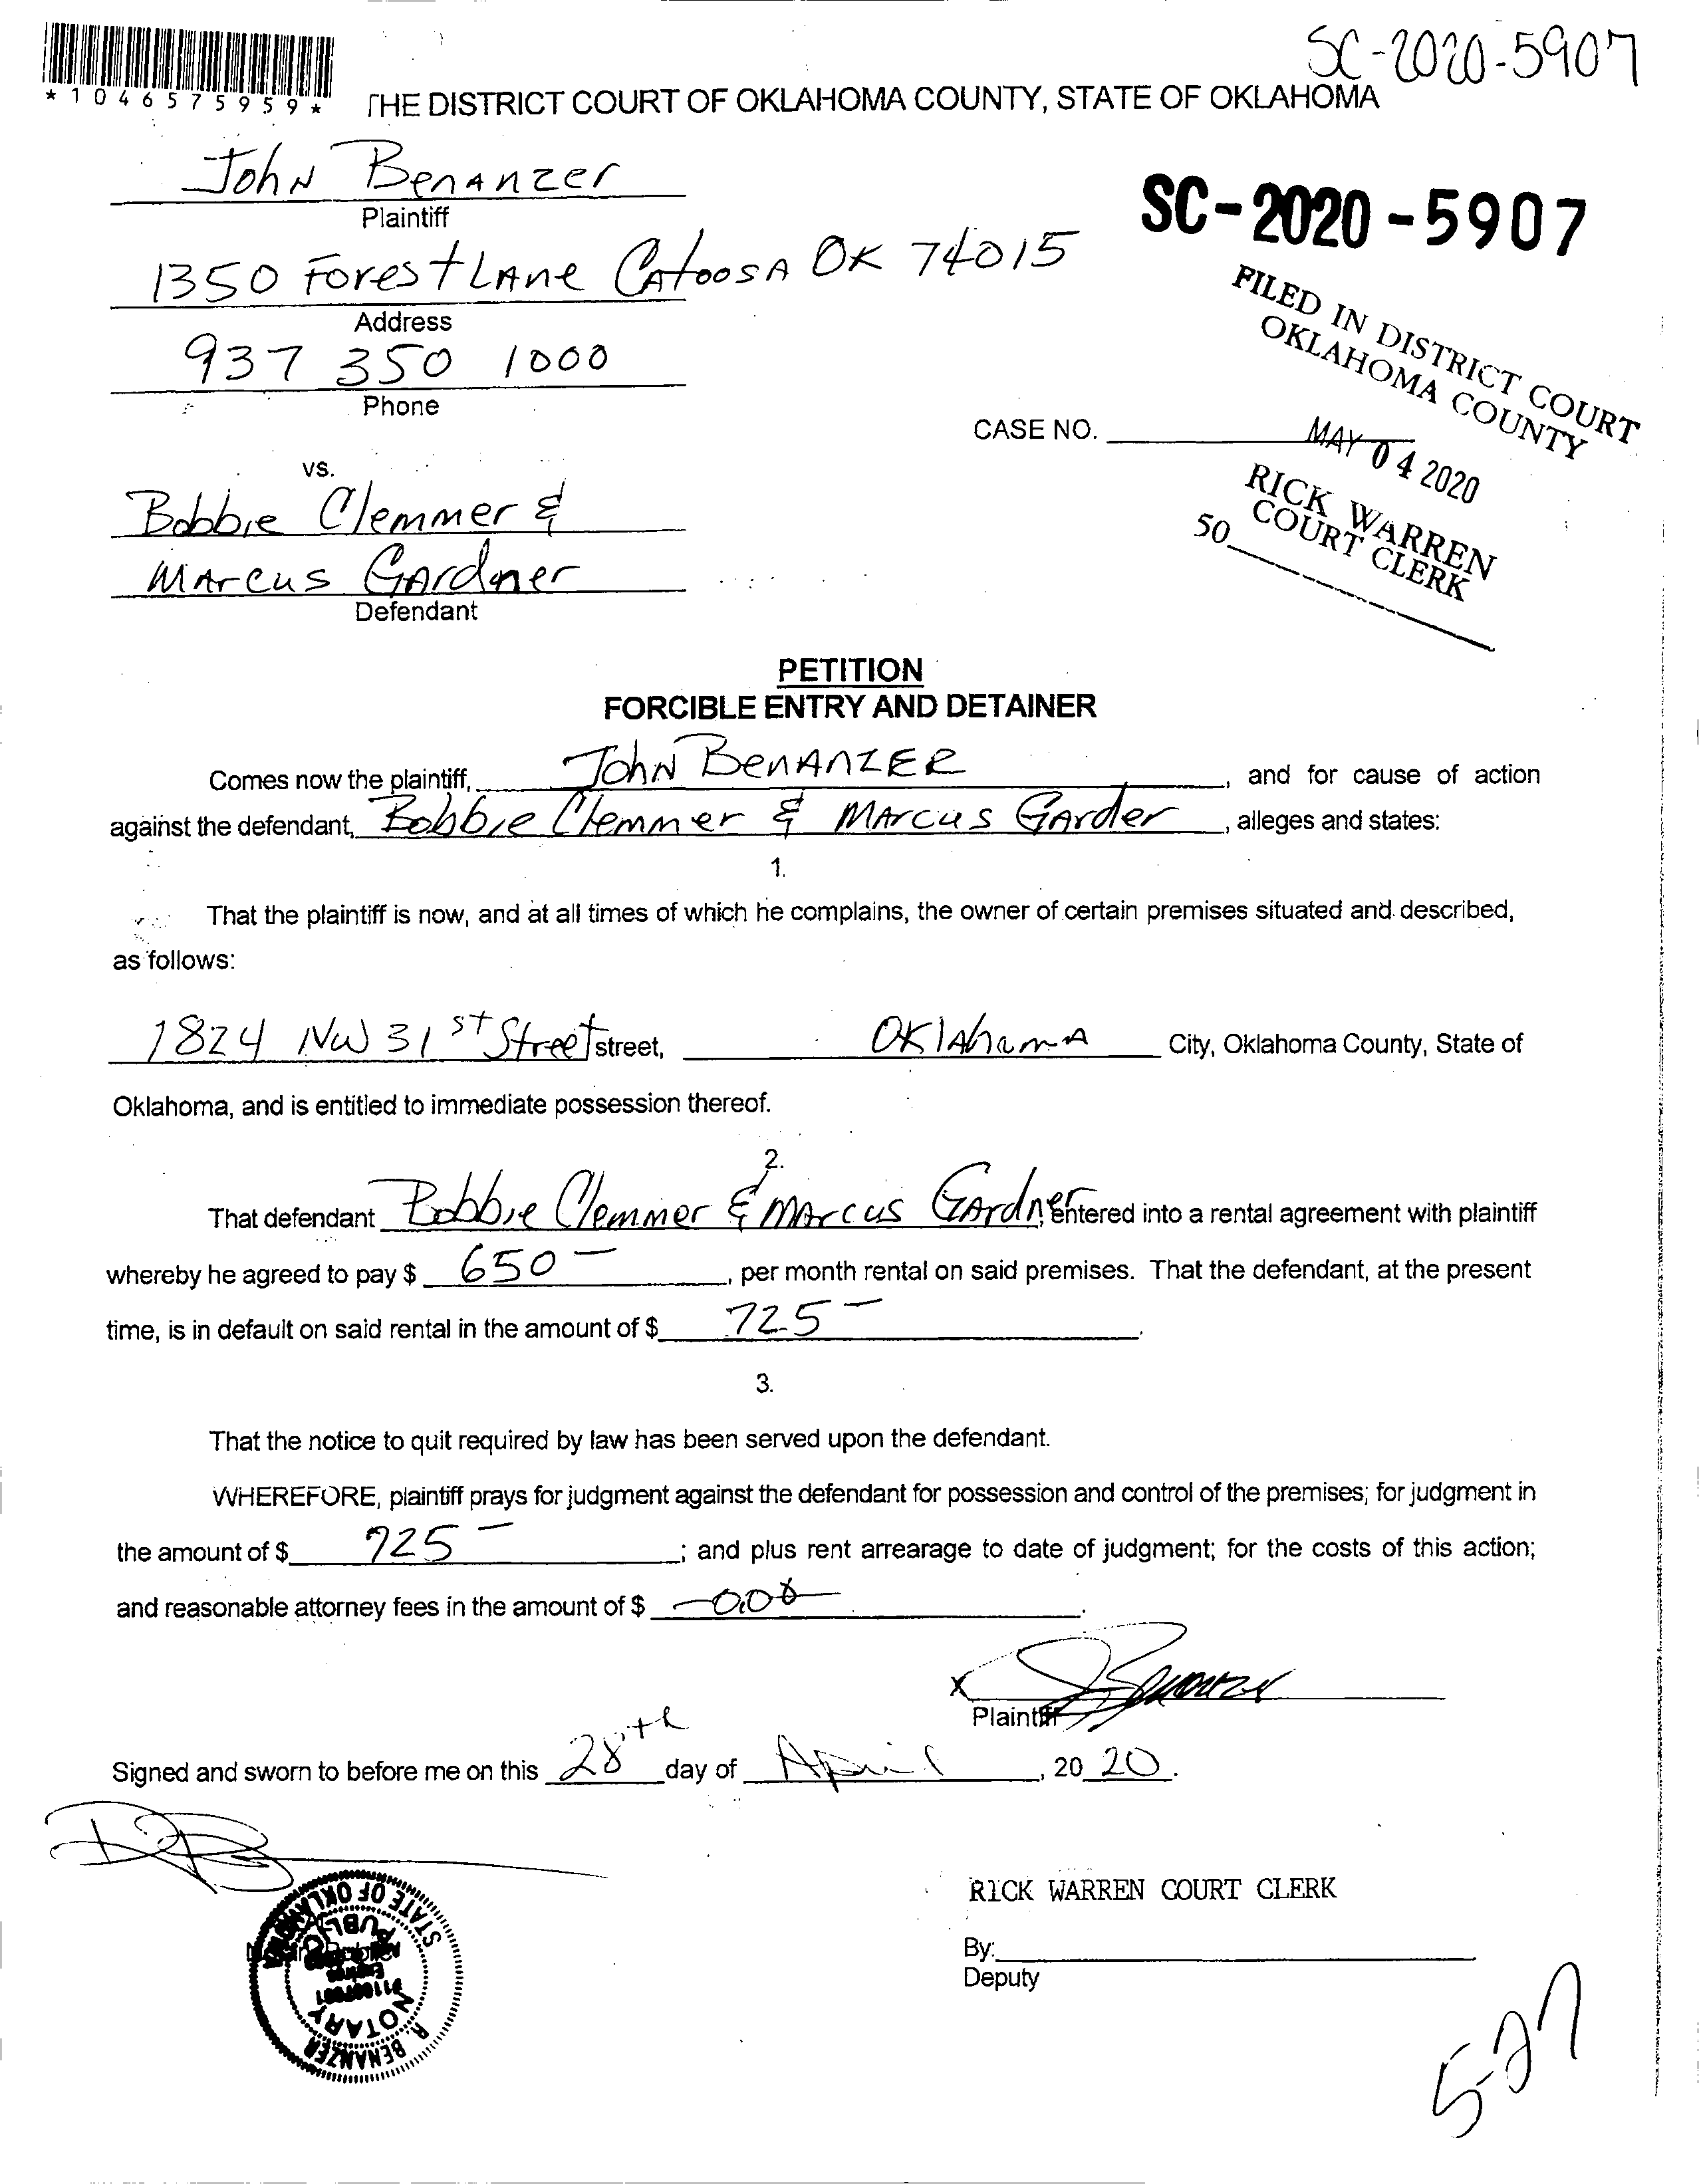 SC-2020-5907
*1046575959*
THE DISTRICT COURT OF OKLAHOMA COUNTY, STATE OF OKLAHOMA
John Benanzer
Plaintiff
SC-2020-5907
1350 Forest Lane Catoosa OK 74015
Address
FILED IN DISTRICT COURT
OKLAHOMA COUNTY
937 350 1000
Phone
CASE NO.
MAY 04 2020
vs.
RICK WARREN
COURT CLERK
50
Bobbie Clemmer &
Marcus Gardner
Defendant
PETITION
FORCIBLE ENTRY AND DETAINER
Comes now the plaintiff, John Benanzer, and for cause of action
against the defendant, Bobbie Clemmer & Marcus Garder, alleges and states:
1.
That the plaintiff is now, and at all times of which he complains, the owner of certain premises situated and described,
as follows:
1824 NW 31st Street street, Oklahoma City, Oklahoma County, State of
Oklahoma, and is entitled to immediate possession thereof.
2.
That defendant Bobbie Clemmer & Marcus Gardner, entered into a rental agreement with plaintiff
whereby he agreed to pay $ 650-, per month rental on said premises. That the defendant, at the present
time, is in default on said rental in the amount of $ 725-.
3.
That the notice to quit required by law has been served upon the defendant.
WHEREFORE, plaintiff prays for judgment against the defendant for possession and control of the premises; for judgment in
the amount of $ 725-; and plus rent arrearage to date of judgment; for the costs of this action;
and reasonable attorney fees in the amount of $ 0.00.
X
Plaintiff
Signed and sworn to before me on this 28th day of April, 2020.
RICK WARREN COURT CLERK
By:
Deputy
R. BENANZER
NOTARY
PUBLIC
STATE OF OKLAHOMA
Expires
5-27